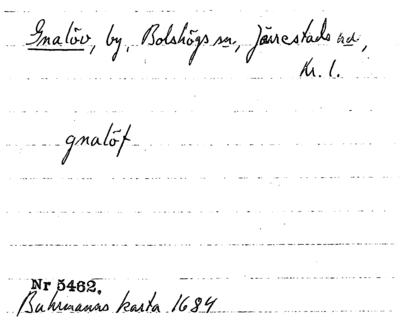 Gnalöv, by, Bolshögs sn, Järrestads hd,
Kr. l.
gnalöf
Nr 5462.
Buhrmanns karta 1684